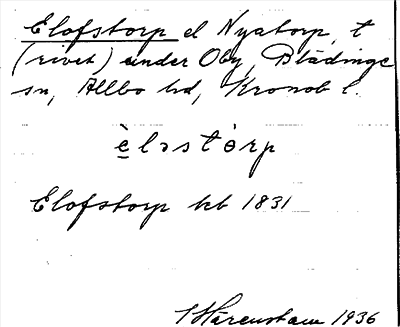 Elofstorp el Nyatorp, t
(rivet) under Oby, Blädinge
sn, Allbo hd, Kronob l.
èləstòrp
Elofstorp kb 1831
Härenstam 1936